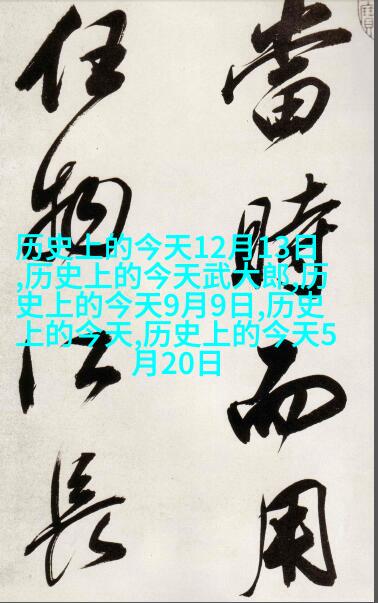 當時而用
任物以長
历史上的今天12月13日
,历史上的今天武大郎,历
史上的今天9月9日,历史
上的今天,历史上的今天5
月20日